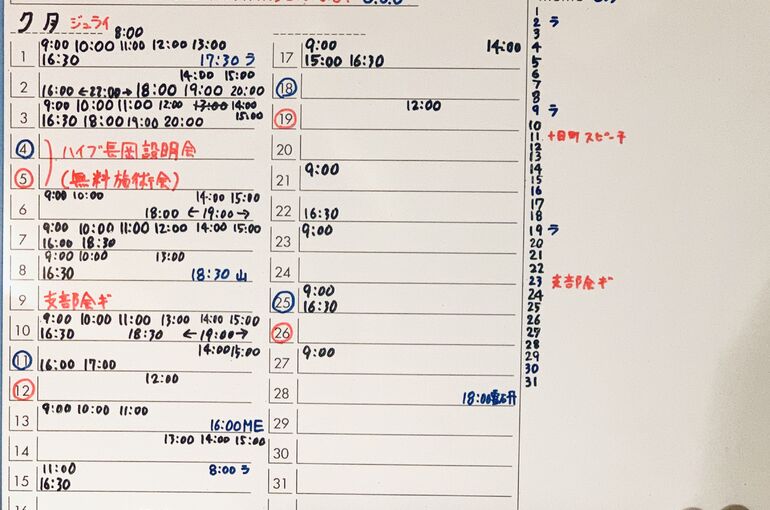 7月 ジュライ
8:00
1 9:00 10:00 11:00 12:00 13:00
16:30 17:30 ラ
14:00 15:00
2 16:00 ←22:00→ 18:00 19:00 20:00
9:00 10:00 11:00 12:00 13:00 14:00
3 16:30 18:00 19:00 20:00 15:00
4 ハイブ長岡説明会
5 (無料施術会)
9:00 10:00 14:00 15:00
6 18:00 ←19:00→
9:00 10:00 11:00 12:00 14:00 15:00
7 16:00 18:30
9:00 10:00 13:00
8 16:30 18:30 山
9 支部会ギ
9:00 10:00 11:00 13:00 14:00 15:00
10 16:30 18:30 ←19:00→
14:00 15:00
11 16:00 17:00
12 12:00
9:00 10:00 11:00
13 16:00 ME
13:00 14:00 15:00
14
11:00 8:00 ラ
15 16:30
16
9:00 14:00
17 15:00 16:30
18
19 12:00
20
21 9:00
22 16:30
23 9:00
24
9:00
25 16:30
26
27 9:00
28 18:00
29
30
31
1
2 ラ
3
4
5
6
7
8
9 ラ
10
11 十日町 スピーチ
12
13
14
15
16
17
18
19 ラ
20
21
22
23 支部会ギ
24
25
26
27
28
29
30
31